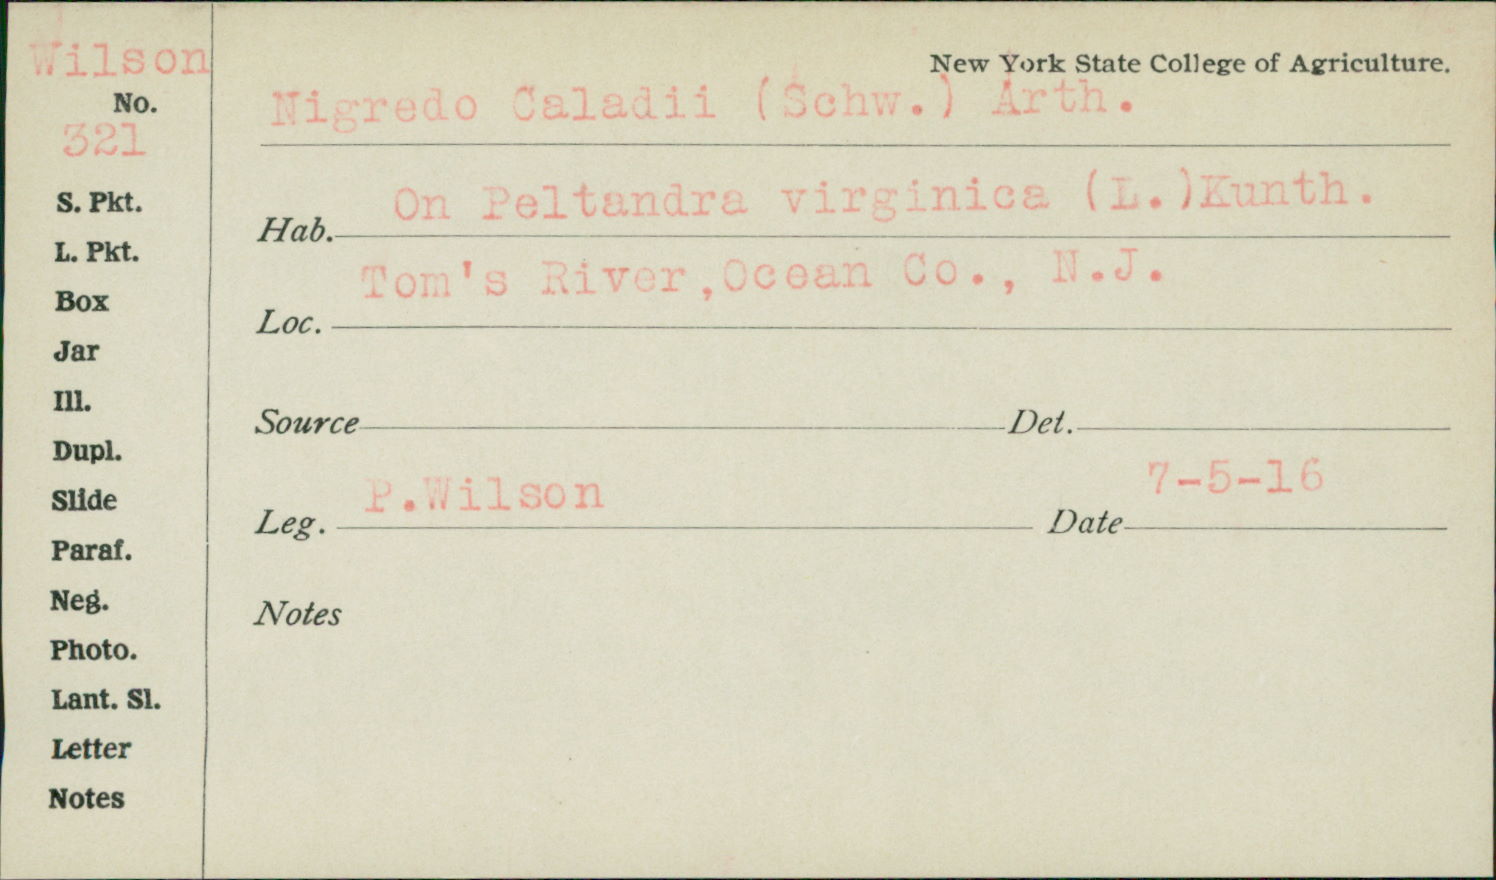 Wilson
No.
321
S. Pkt.
L. Pkt.
Box
Jar
Ill.
Dupl.
Slide
Paraf.
Neg.
Photo.
Lant. Sl.
Letter
Notes
New York State College of Agriculture.
Nigredo Caladii (Schw.) Arth.
Hab. On Peltandra virginica (L.)Kunth.
Loc. Tom's River,Ocean Co., N.J.
Source Det.
Leg. P.Wilson Date 7-5-16
Notes